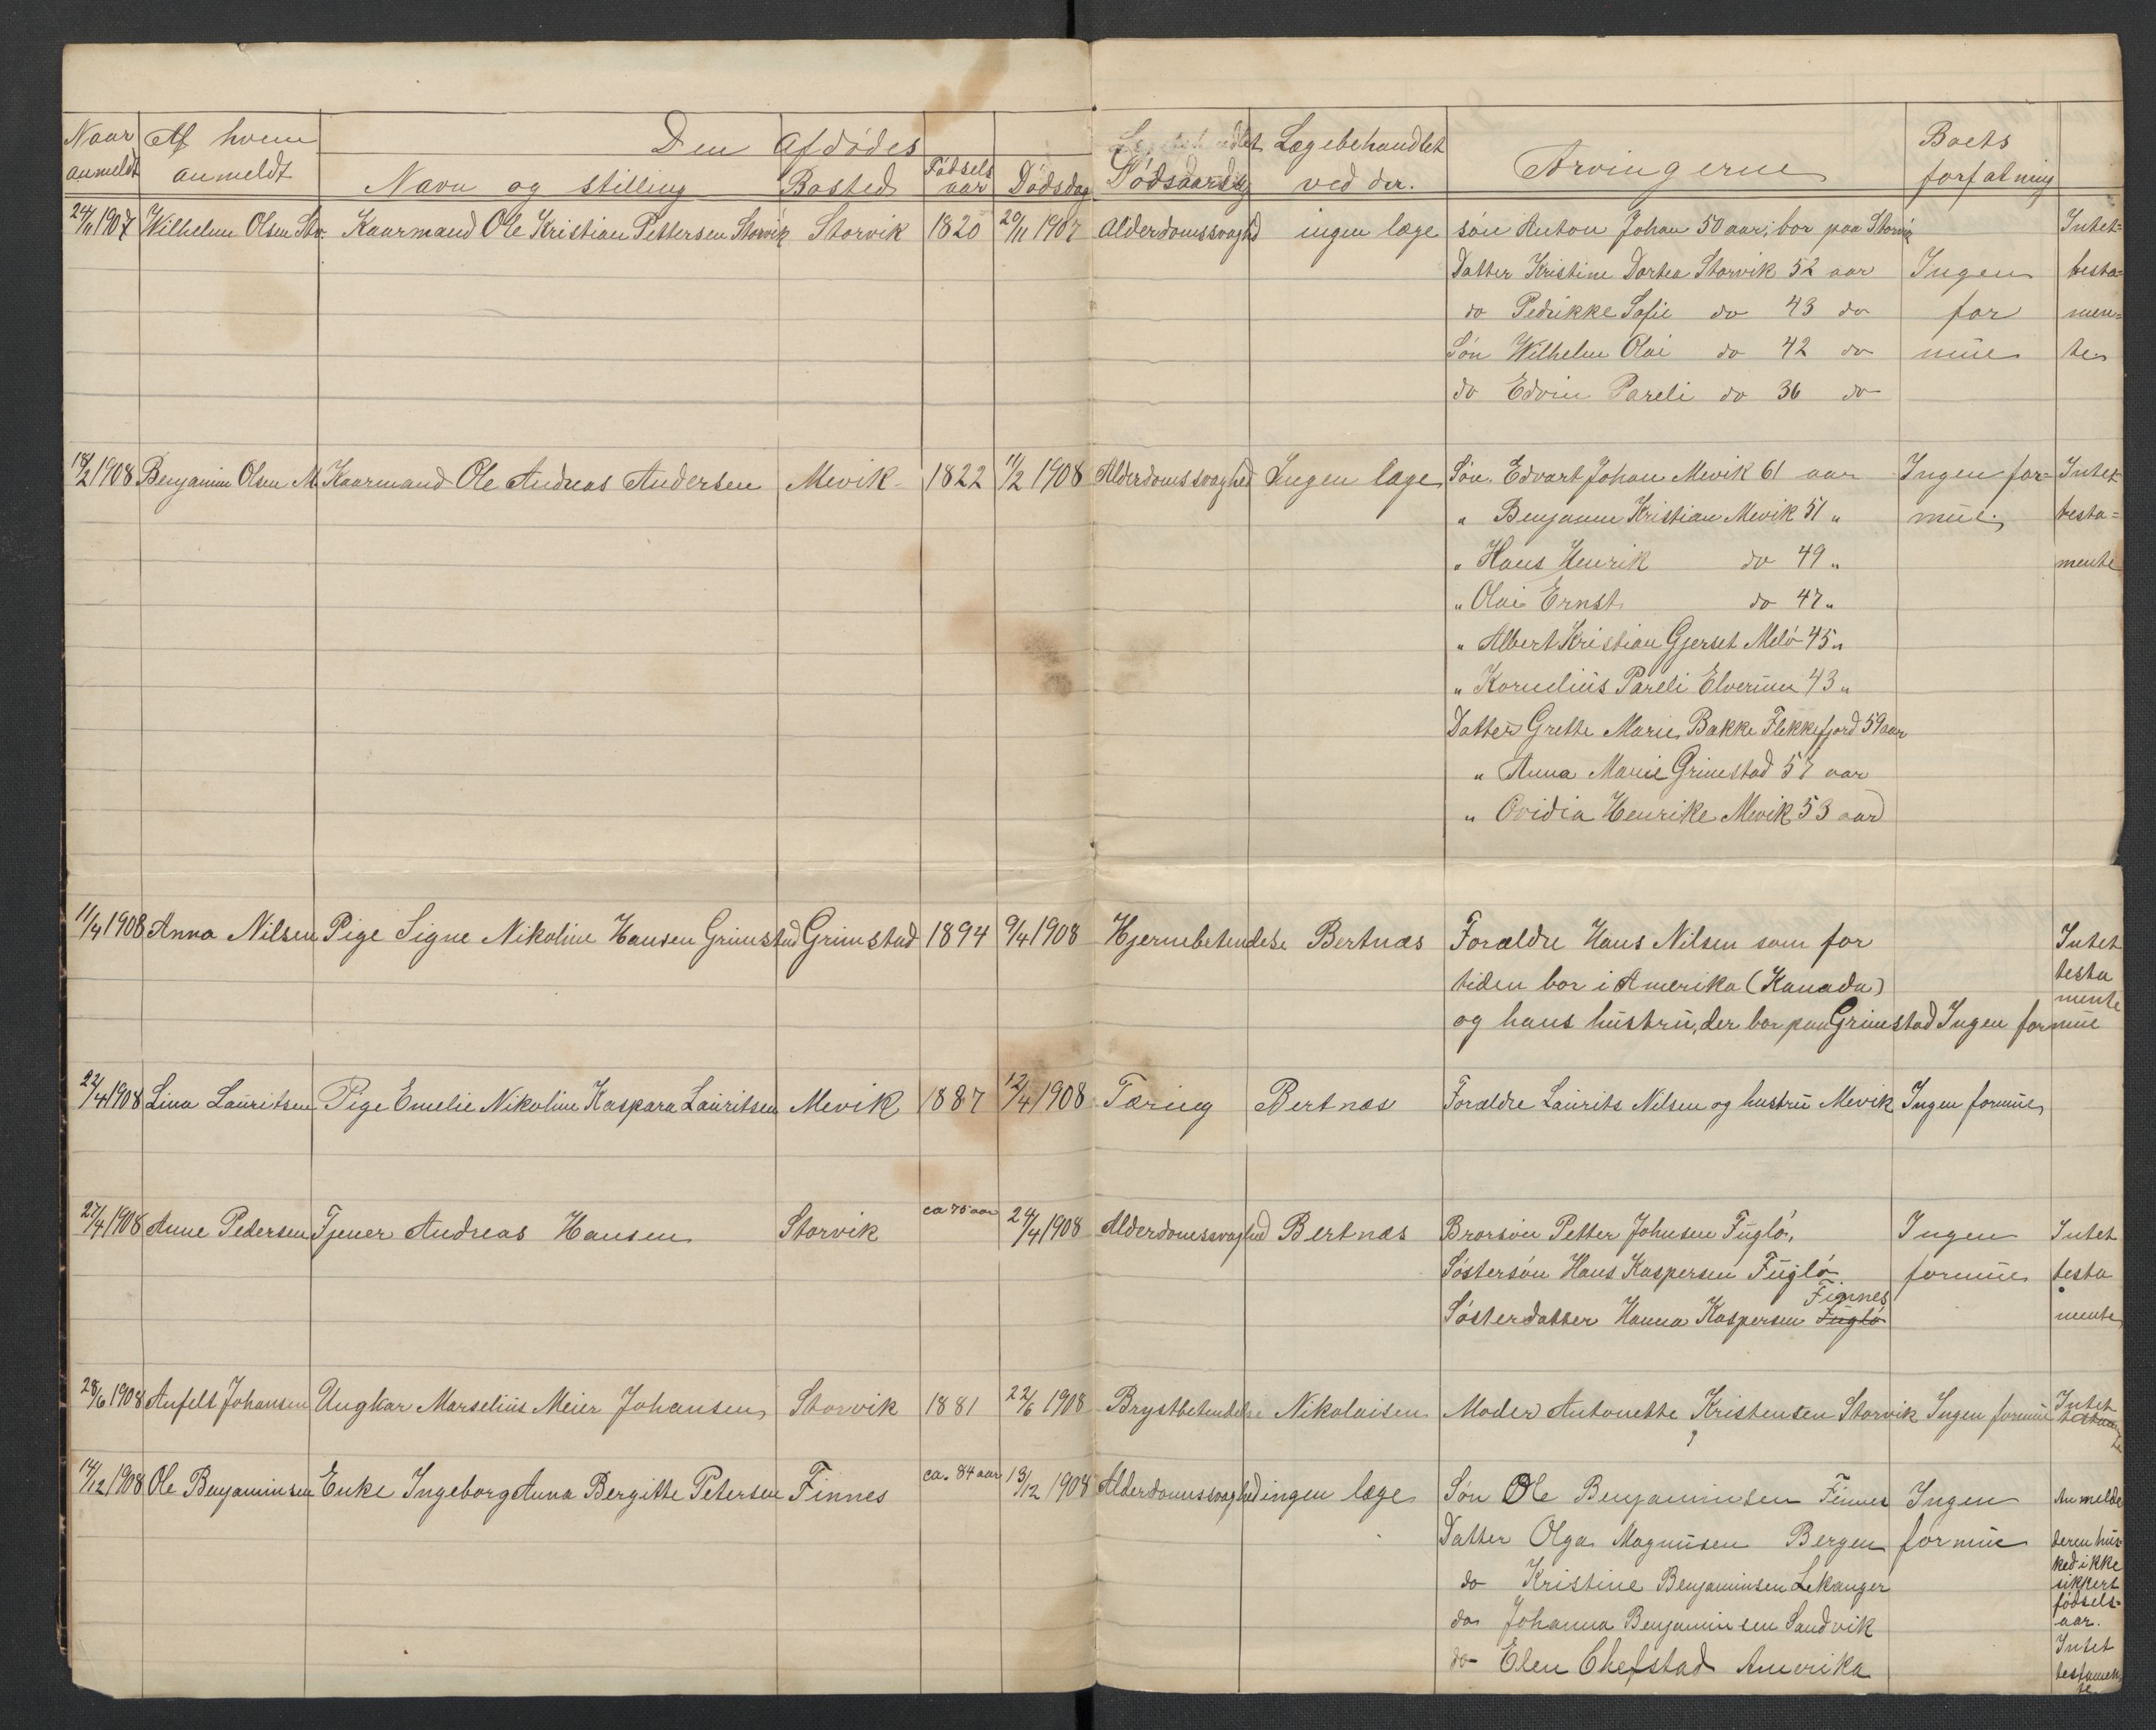 Naar Af hvem Den Afdødes Lægebehandlet Arvingerne Boets
anmeldt anmeldt Navn og stilling Bosted Fødsels aar Dødsdag Dødsaarsag ved dr. forfatning
24/11 1907 Wilhelm Olsen Stv. Kaarmand Ole Kristian Pettersen Storvik Storvik 1820 20/11 1907 Alderdomssvaghed ingen læge søn Anton Johan 50 aar, bor paa Storvik Intet
Datter Kristine Dortea Storvik 52 aar Ingen testa=
do Pedrikke Sofie do 43 do for men=
Søn Wilhelm Olai do 42 do mue te
do Edvin Pareli do 36 do
18/2 1908 Benjamin Olsen M. Kaarmand Ole Andreas Andersen Mevik 1822 11/2 1908 Alderdomssvaghed Ingen læge Søn Edvart Johan Mevik 61 aar Ingen for= Intet
" Benjamin Kristian Mevik 51 " mue. testa=
" Hans Henrik do 49 " mente
" Olai Ernst do 47 "
" Albert Kristian Gjerset Melø 45 "
" Kornelius Pareli Elverum 43 "
Datter Grethe Marie Bakke Flekkefjord 59 aar
" Anna Marie Grimstad 57 aar
" Ovidia Henrike Mevik 53 aar
11/4 1908 Anna Nilsen Pige Signe Nikoline Hansen Grimstad Grimstad 1894 9/4 1908 Hjernebetendelse Bertnæs Forældre Hans Nilsen som for Intet
tiden bor i Amerika (Kanada) testa
mente
og hans hustru, der bor paa Grimstad Ingen formue
22/4 1908 Lina Lauritsen Pige Emelie Nikoline Kaspara Lauritsen Mevik 1887 12/4 1908 Tæring Bertnæs Forældre Laurits Nilsen og hustru Mevik Ingen formue
27/4 1908 Anne Pedersen Tjener Andreas Hansen Storvik ca 75 aar 24/4 1908 Alderdomssvaghed Bertnæs Brorsøn Petter Johnsen Fuglø, Ingen Intet
Søstersøn Hans Kaspersen Fuglø. formue testa
Finnes
Søsterdatter Hanna Kaspersen Fuglø mente
28/6 1908 Anfelt Johansen Ungkar Marselius Meier Johansen Storvik 1881 22/6 1908 Brystbetendelse Nikolaisen Moder Antonette Kristensen Storvik Ingen formue Intet testamente
14/12 1908 Ole Benjaminsen Enke Ingeborg Anna Bergitte Petersen Finnes ca. 84 aar 13/12 1908 Alderdomssvaghed ingen læge Søn Ole Benjaminsen Finnes Ingen Anmelde
Datter Olga Magnusen Bergen formue deren hus
ked ikke
do Kristine Benjaminsen Lekanger sikkert
fødsels=
do Johanna Benjaminsen Sandvik aar.
Intet
do Elen Chefstad Amerika testamen
te